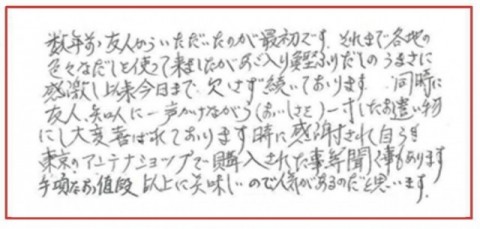 数年前、友人からいただいたのが最初です。それまで各地の
色々なだしを使って来ましたがあご入り鰹ふりだしのうまさに
感激し以来今日まで、欠さず続いております。同時に
友人、知人に一声かけながら(おいしさを)一寸したお遣い物
にし大変喜ばれております 時に感謝され自ら
東京のアンテナショップで購入された事等聞く事もあります
手頃なお値段 以上に美味しいので人気があるのだと思います。